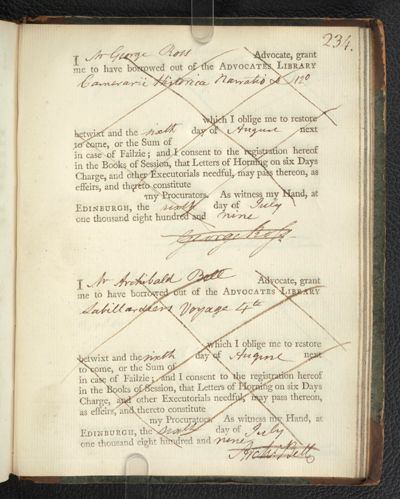 234.
I Mr George Ross Advocate, grant
me to have borrowed out of the ADVOCATES LIBRARY
Camerarii Historica Narratio 120
which I oblige me to restore
betwixt and the sixth day of August next
to come, or the Sum of
in case of Failzie; and I consent to the registration hereof
in the Books of Session, that Letters of Horning on six Days
Charge, and other Executorials needful, may pass thereon, as
effeirs, and thereto constitute
my Procurators. As witness my Hand, at
EDINBURGH, the sixth day of July
one thousand eight hundred and nine
George Ross
I Mr Archibald Bell Advocate, grant
me to have borrowed out of the ADVOCATES LIBRARY
Labillardiere Voyage 4to
which I oblige me to restore
betwixt and the sixth day of August next
to come, or the Sum of
in case of Failzie; and I consent to the registration hereof
in the Books of Session, that Letters of Horning on six Days
Charge, and other Executorials needful, may pass thereon,
as effeirs, and thereto constitute
my Procurators. As witness my Hand, at
EDINBURGH, the sixth day of July
one thousand eight hundred and nine
Archd Bell